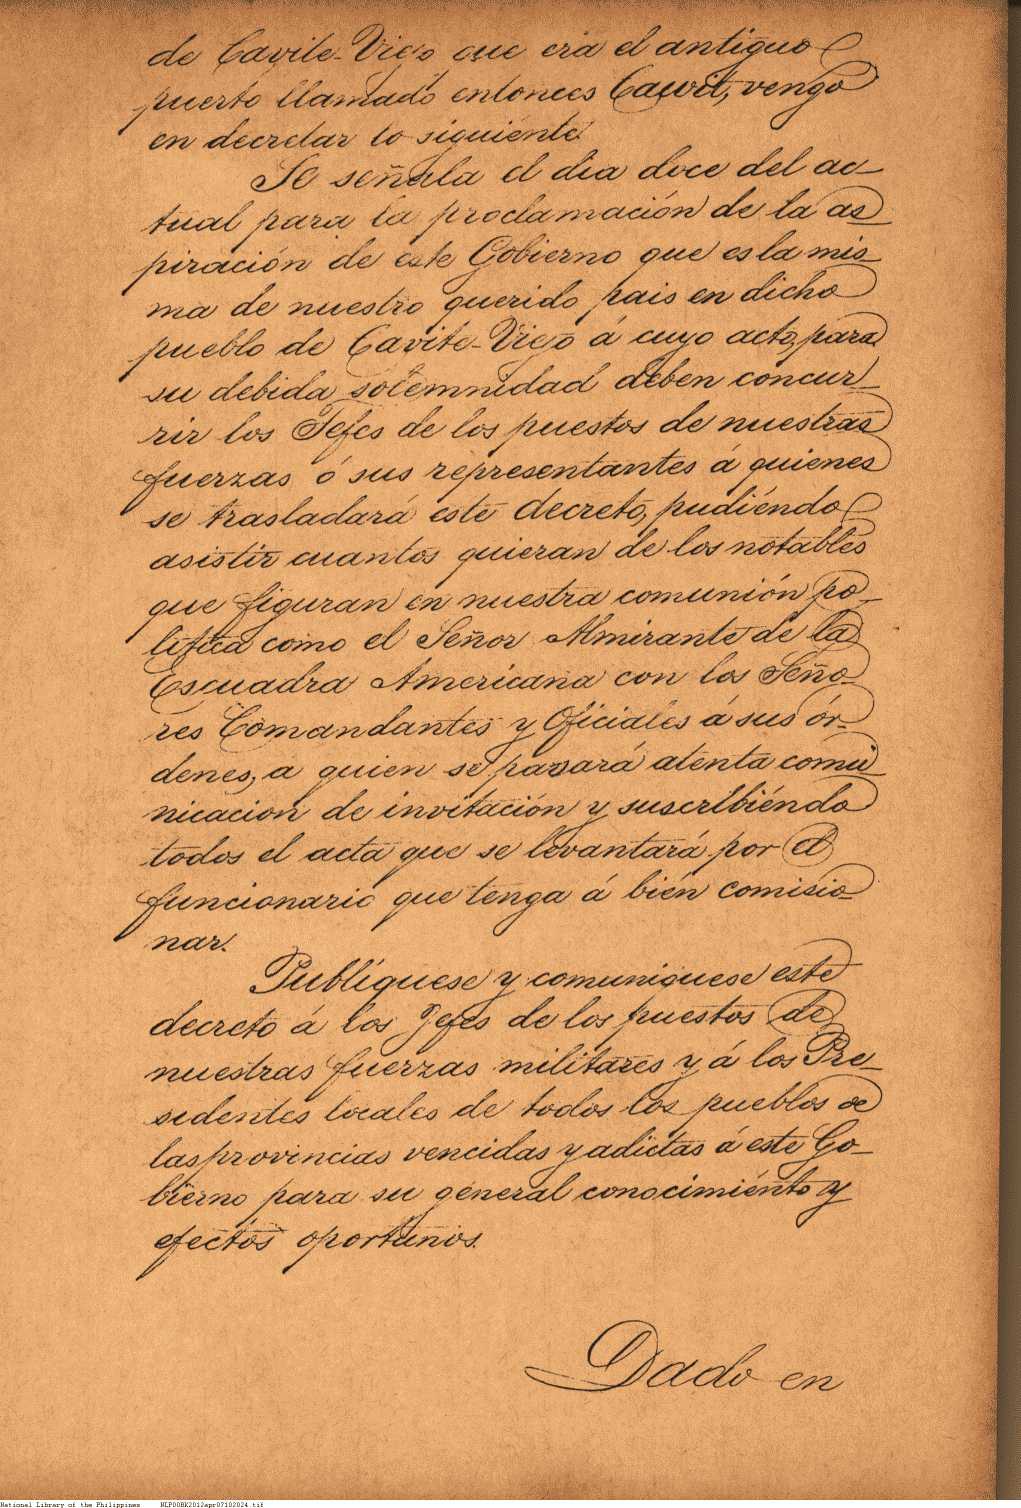 de Cavite-Viejo que era el antiguo
puerto llamado entonces Cawit, vengo
en decretar lo siguiente:
Se señala el dia doce del ac-
tual para la proclamación de la as-
piración de este Gobierno que es la mis-
ma de nuestro querido pais en dicho
pueblo de Cavite-Viejo á cuyo acto, para
su debida solemnidad deben concur-
rir los Jefes de los puestos de nuestras
fuerzas ó sus representantes á quienes
se trasladará este decreto, pudiéndo
asistir cuantos quieran de los notables
que figuran en nuestra comunión po-
lítica como el Señor Almirante de la
Escuadra Americana con los Seño-
res Comandantes y Oficiales á sus ór-
denes, a quien se pasará atenta comu-
nicacion de invitación y suscribiéndo
todos el acta que se levantará por el
funcionario que tenga á bién comisio-
nar.
Publíquese y comuniquese este
decreto á los Jefes de los puestos de
nuestras fuerzas militares y á los Pre-
sidentes locales de todos los pueblos de
las provincias vencidas y adictas á este Go-
bierno para su general conocimiénto y
efectos oportunos.
Dado en
National Library of the Philippines NLPOOBK2012apr07102024.tif